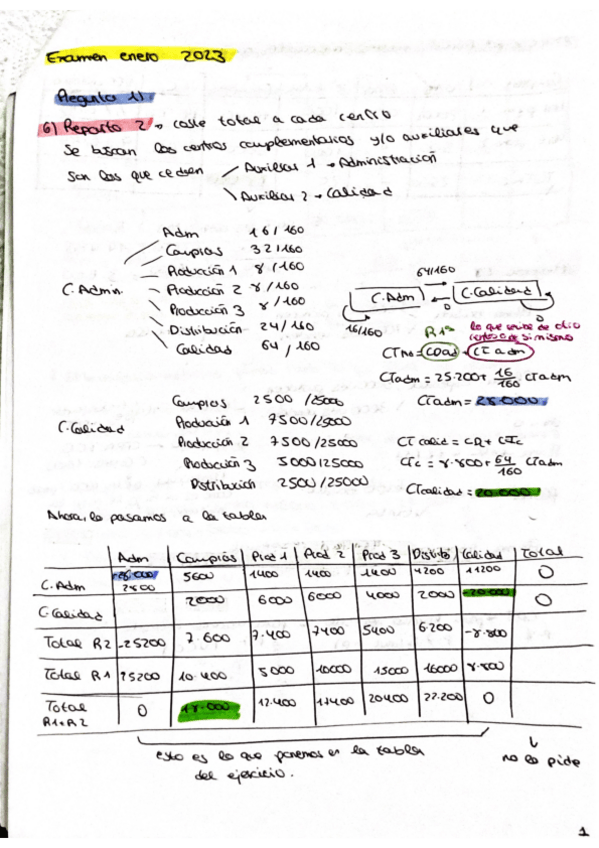 Examen enero 2023
Pregunta 1)
6) Reparto 2 → coste total a cada centro
se buscan los centros complementarios y/o auxiliares que
son los que ceden
Auxiliar 1 → Administración
Auxiliar 2 → Calidad
C. Admin.
Adm 16/160
Compras 32/160
Producción 1 8/160
Producción 2 8/160
Producción 3 8/160
Distribución 24/160
Calidad 64/160
64/160
C. Adm C. Calidad
0
16/160 0
lo que recibe de otro
centro o de si mismo
CTadm = 25.200 + 16/160 CTadm
CTadm = 28.000
C. Calidad
Compras 2500/25000
Producción 1 7500/25000
Producción 2 7500/25000
Producción 3 5000/25000
Distribución 2500/25000
CTc = 8.800 + 64/160 CTadm
CTcalidad = 20.000
Ahora lo pasamos a la tabla
Adm Compras Prod 1 Prod 2 Prod 3 Distrib Calidad Total
C. Adm -28.000 2800 5600 1400 1400 1400 4200 11200 0
C. Calidad 2000 6000 6000 4000 2000 -20.000 0
Total R2 -25200 7.600 7.400 7400 5400 6.200 -8.800
Total R1 25200 10.400 5000 10000 15000 16000 8.800
Total R1+R2 0 18.000 12.400 17400 20400 22.200 0
esto es lo que ponemos en la tabla
del ejercicio.
no lo pide
1